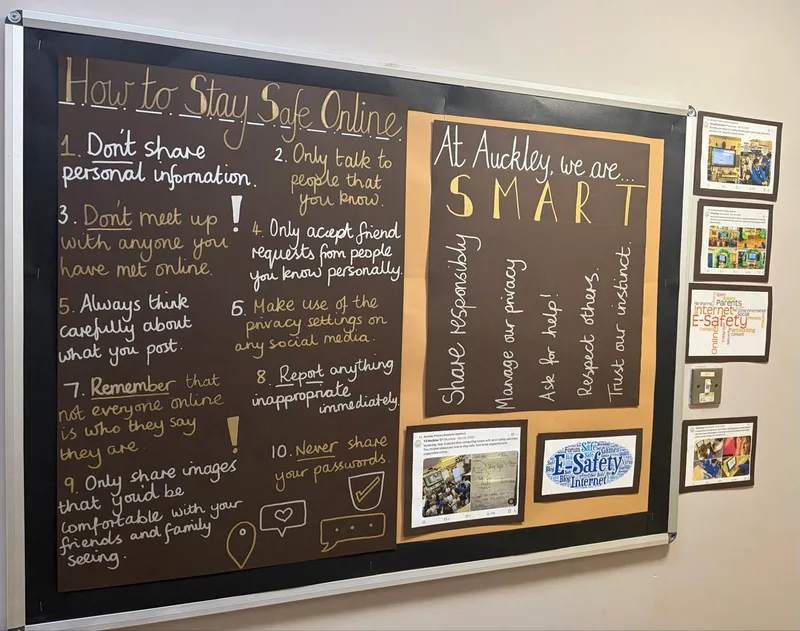 How to Stay Safe Online
1. Don't share
personal information.
2. Only talk to
people that
you know.
3. Don't meet up
with anyone you
have met online.
!
4. Only accept friend
requests from people
you know personally.
5. Always think
carefully about
what you post.
6. Make use of the
privacy settings on
any social media.
7. Remember that
not everyone online
is who they say
they are.
!
8. Report anything
inappropriate
immediately.
9. Only share images
that you'd be
comfortable with your
friends and family
seeing.
10. Never share
your passwords.
At Auckley, we are...
SMART
Share responsibly
Manage our privacy
Ask for help!
Respect others.
Trust our instinct.
Forum Safe Games
E-Safety
Blog Internet
Parents
Internet
E-Safety
online